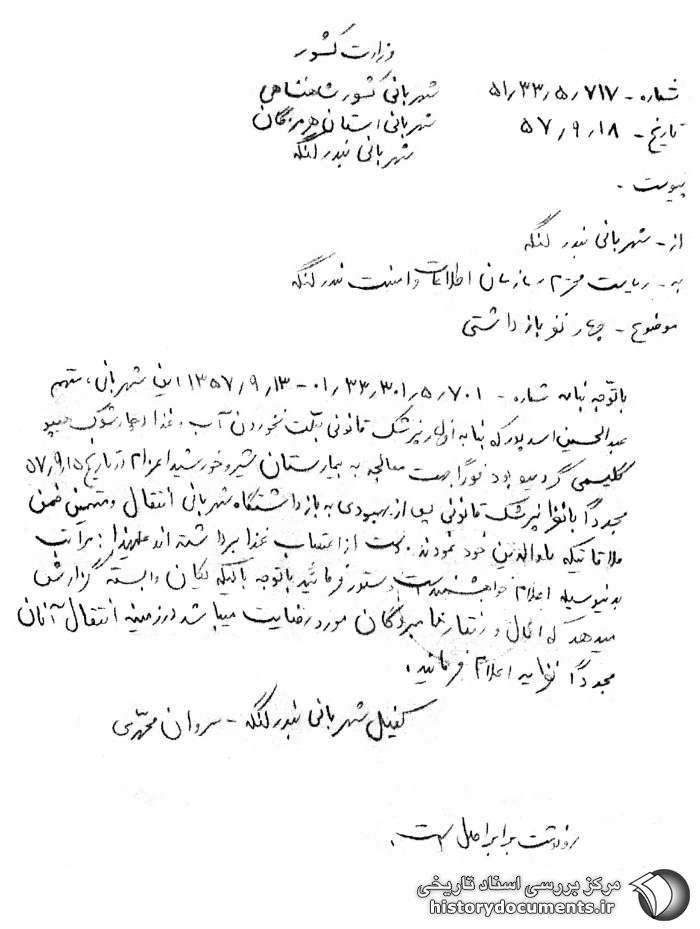 وزارت کشور
شماره - ۵۱٫۳۳٫۵٫۷۱۷ شهربانی کشور شاهنشاهی
تاریخ - ۵۷٫۹٫۱۸ شهربانی استان هرمزگان
شهربانی بندر لنگه
پیوست -
از - شهربانی بندر لنگه
به - ریاست محترم سازمان اطلاعات و امنیت بندر لنگه
موضوع - چهار نفر بازداشتی
با توجه بنامه شماره - ۰۱٫۳۳٫۳۰۱٫۵٫۷۰۱ - ۱۳۵۷٫۹٫۱۳ این شهربانی، متهم
عبدالحسین اسدپور که بنا به اظهار پزشک قانونی بعلت نخوردن آب و غذا دچار شوک هیپو
گلیسمی گردیده بود فوراً جهت معالجه به بیمارستان شیر و خورشید اعزام در تاریخ ۵۷٫۹٫۱۵
مجدداً با نظر پزشک قانونی پس از بهبودی به بازداشتگاه شهربانی انتقال و متهمین ضمن
ملاقاتیکه با والدین خود نمودند دست از اعتصاب غذا برداشته اند علیهذا: مراتب
بدینوسیله اعلام خواهشمند است دستور فرمائید با توجه باینکه یگان وابسته گزارش
میدهد که اعمال و رفتار نامبردگان مورد رضایت میباشد در زمینه انتقال آنان
مجدداً نظریه اعلام فرمائید.
کفیل شهربانی بندر لنگه - سروان محمدی
رونوشت برابر اصل است.
مرکز بررسی اسناد تاریخی
historydocuments.ir